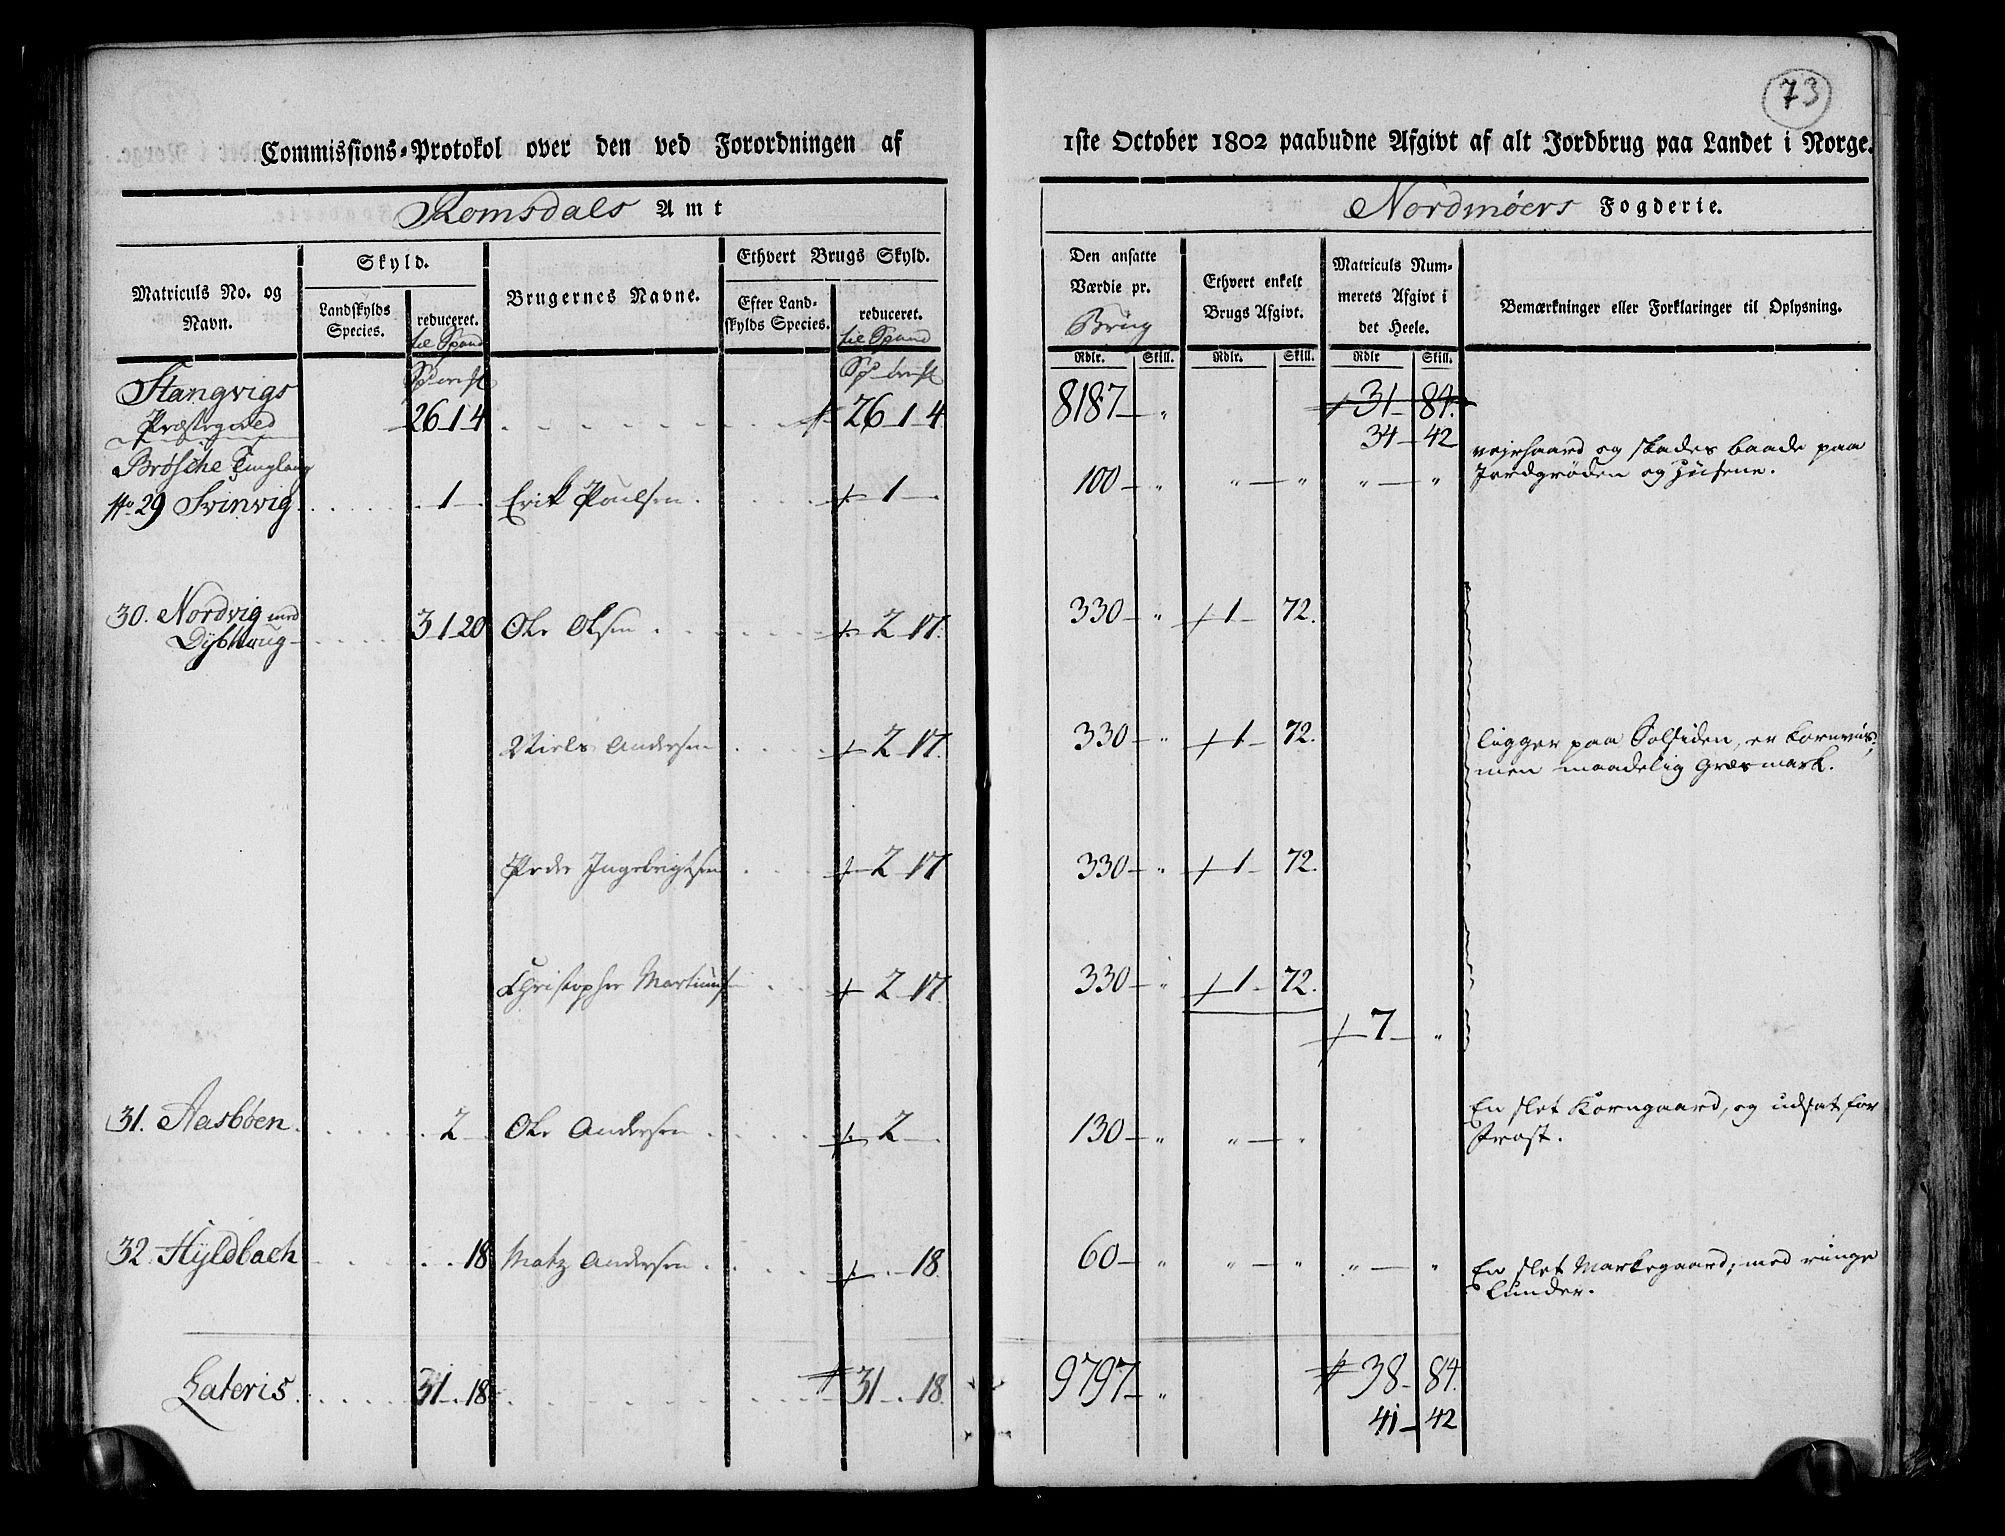 73
Commissions-Protokol over den ved Forordningen af 1ste October 1802 paabudne Afgivt af alt Jordbrug paa Landet i Norge.
Romsdals Amt
Nordmøers Fogderie.
Matriculs No. og Navn.
Skyld.
Landskylds Species.
reduceret.
til Spand
Brugernes Navne.
Ethvert Brugs Skyld.
Efter Landskylds Species.
reduceret.
til Spand
Den ansatte Værdie pr.
Brug
Ethvert enkelt Brugs Afgivt.
Matriculs Nummerets Afgivt i det Heele.
Bemærkninger eller Forklaringer til Oplysning.
Rdlr. Skill. Rdlr. Skill. Rdlr Skill.
Stangvigs
Præstegield 26-1-4 26-1-4 8187 " 31-84.
34-42
Brøsche Tinglaug
No. 29 Svinvig 1 Erik Poulsen 1 100 " " " " "
og skades baade paa
Jordgrøden og Husene.
30. Nordvig med
Dybhaug 3-1-20 Ole Olsen 2-17. 330 " 1-72.
Niels Andersen 2-17. 330 " 1-72.
ligger paa Solsiden, er kornviis,
men maadelig Græsmark.
Peder Ingebrigtsen 2-17 330 " 1-72.
Christopher Martinus 2-17. 330 " 1-72.
7 "
31. Aasbøen 2 Ole Andersen 2 130 " " "
En slet Korngaard, og udsat for
Frost.
32. Hyldbach 18 Matz Andersen 18 60 " " " " "
En slet Markegaard, med ringe
Lunder.
Lateris 31-18 31-18. 9797 " 38-84.
41-42